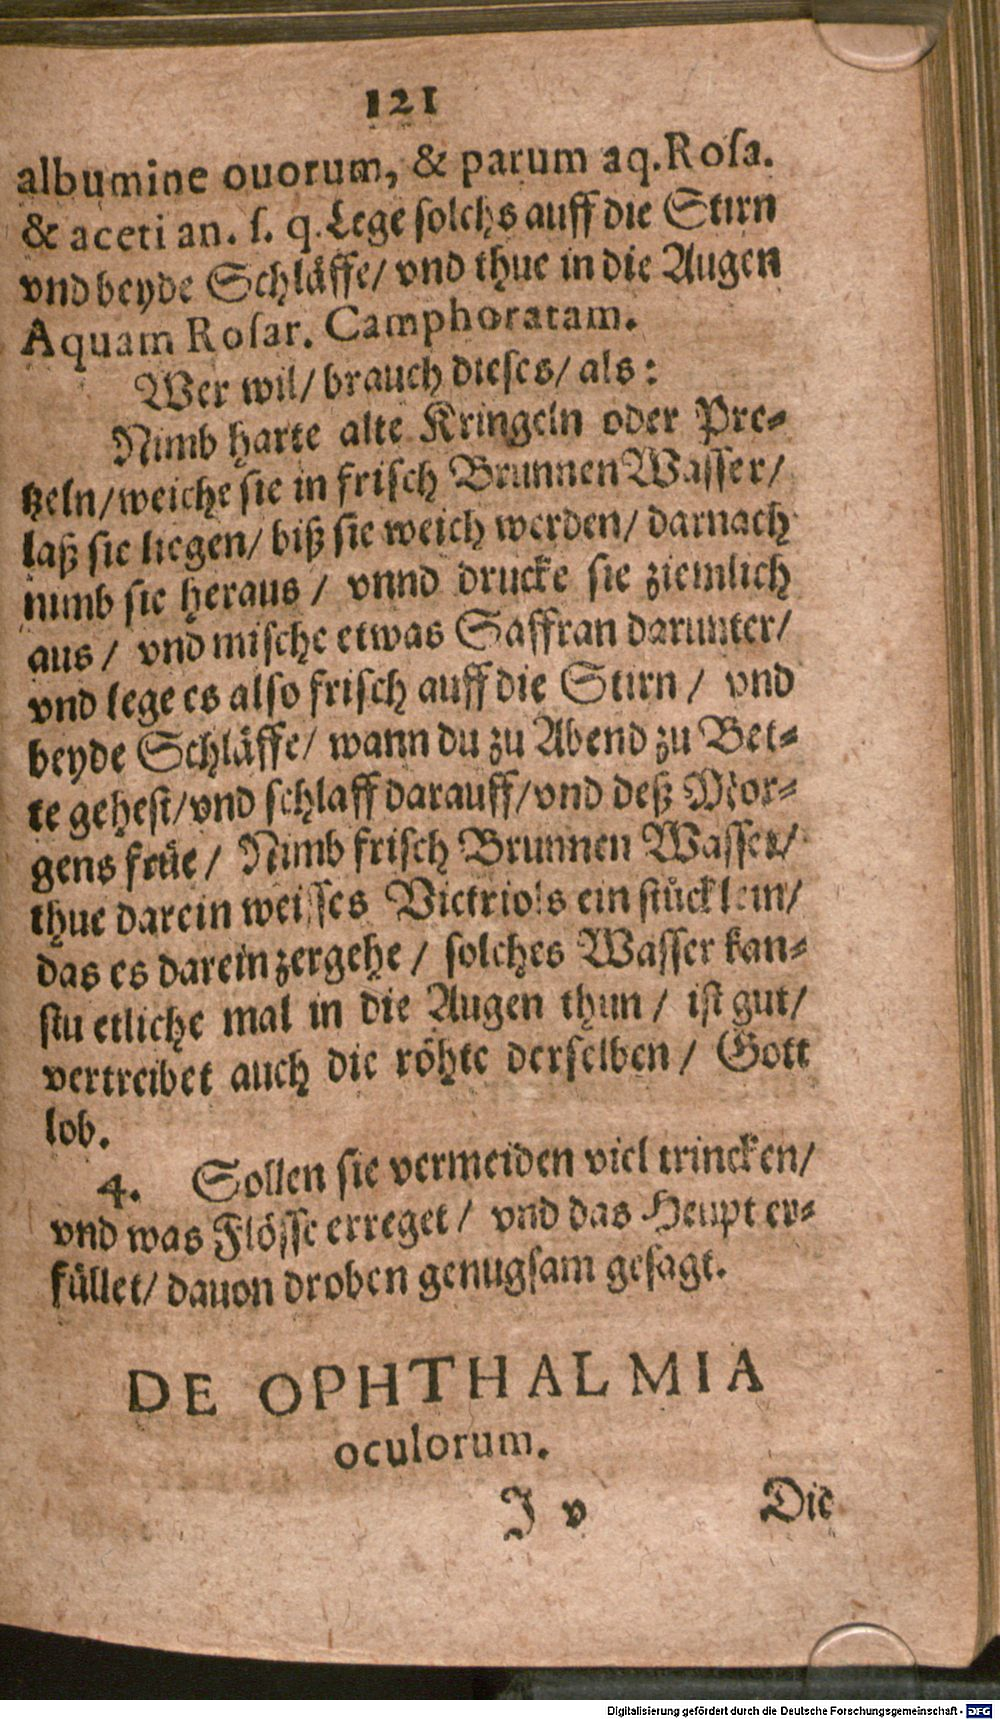 121
albumine ouorum, & parum aq. Rosa.
& aceti an. s. q. Lege solchs auff die Stirn
vnd beyde Schläffe/ vnd thue in die Augen
Aquam Rosar. Camphoratam.
Wer wil/ brauch dieses/ als:
Nimb harte alte Kringeln oder Pre-
tzeln/ weiche sie in frisch Brunnen Wasser/
laß sie liegen/ biß sie weich werden/ darnach
nimb sie heraus / vnnd drucke sie ziemlich
aus / vnd mische etwas Saffran darunter/
vnd lege es also frisch auff die Stirn / vnd
beyde Schläffe/ wann du zu Abend zu Bet-
te gehest/ vnd schlaff darauff/ vnd deß Mor-
gens früe / Nimb frisch Brunnen Wasser/
thue darein weisses Victriols ein stücklein/
das es darein zergehe / solches Wasser kan-
stu etliche mal in die Augen thun / ist gut/
vertreibet auch die röhte derselben / Gott
lob.
4. Sollen sie vermeiden viel trincken/
vnd was Flösse erreget / vnd das Heupt er-
füllet/ dauon droben genugsam gesagt.
DE OPHTHALMIA
oculorum.
J v Die
Digitalisierung gefördert durch die Deutsche Forschungsgemeinschaft - DFG